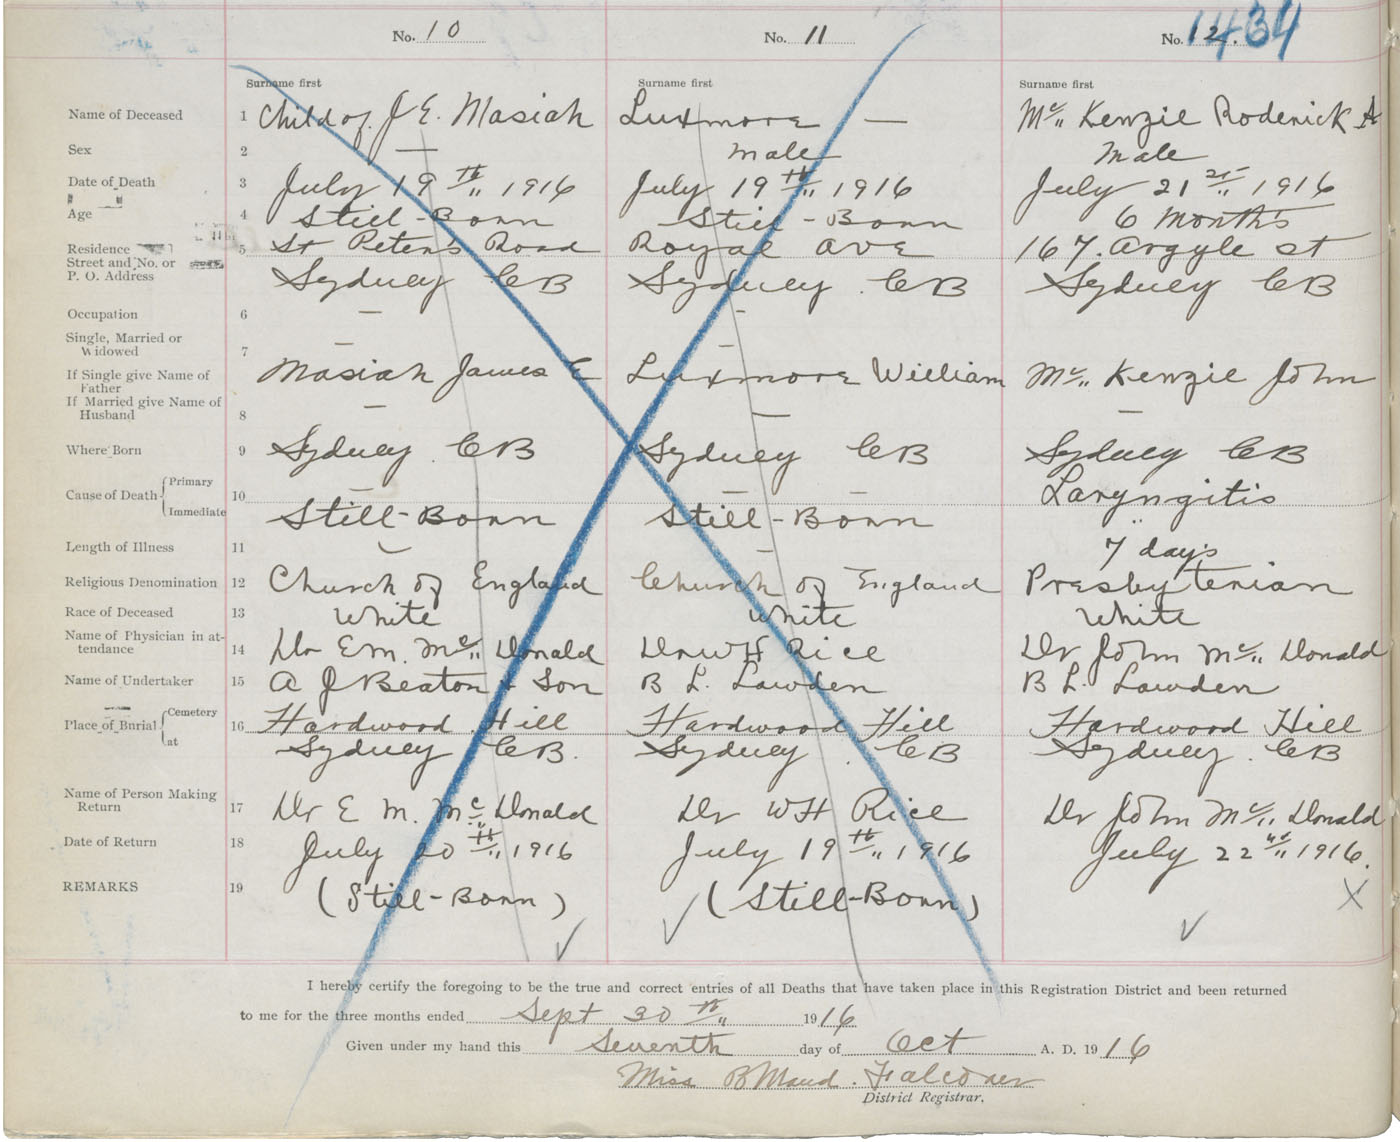 1434
No. 10 No. 11 No. 12.
Surname first Surname first Surname first
Name of Deceased 1 Child of J E. Masiah Luxmore — Mc Kenzie Roderick A
Sex 2 — male Male
Date of Death 3 July 19th 1916 July 19th 1916 July 21st 1916
Age 4 Still-Born Still-Born 6 Months
Residence 5 St Peter's Road Royal Ave 167. Argyle St
Street and No. or
P. O. Address Sydney CB Sydney CB Sydney CB
Occupation 6 — -
Single, Married or
Widowed 7 — —
If Single give Name of
Father Masiah James E Luxmore William Mc Kenzie John
If Married give Name of
Husband 8 — — —
Where Born 9 Sydney CB Sydney CB Sydney CB
Cause of Death { Primary 10 — — — Laryngitis
Immediate Still-Born Still-Born "
Length of Illness 11 — — 7 days
Religious Denomination 12 Church of England Church of England Presbyterian
Race of Deceased 13 White White White
Name of Physician in at-
tendance 14 Dr E M. Mc Donald Dr W H Rice Dr John Mc Donald
Name of Undertaker 15 A J Beaton & Son B L. Lawden B L. Lawden
Place of Burial { Cemetery 16 Hardwood Hill Hardwood Hill Hardwood Hill
at Sydney CB. Sydney CB Sydney. CB
Name of Person Making
Return 17 Dr E M. Mc Donald Dr W H Rice Dr John Mc Donald
Date of Return 18 July 20th 1916 July 19th 1916 July 22nd 1916.
REMARKS 19 (Still-Born) (Still-Born)
I hereby certify the foregoing to be the true and correct entries of all Deaths that have taken place in this Registration District and been returned
to me for the three months ended Sept 30th 1916
Given under my hand this Seventh day of Oct A. D. 1916
Miss B Maud. Falconer
District Registrar.